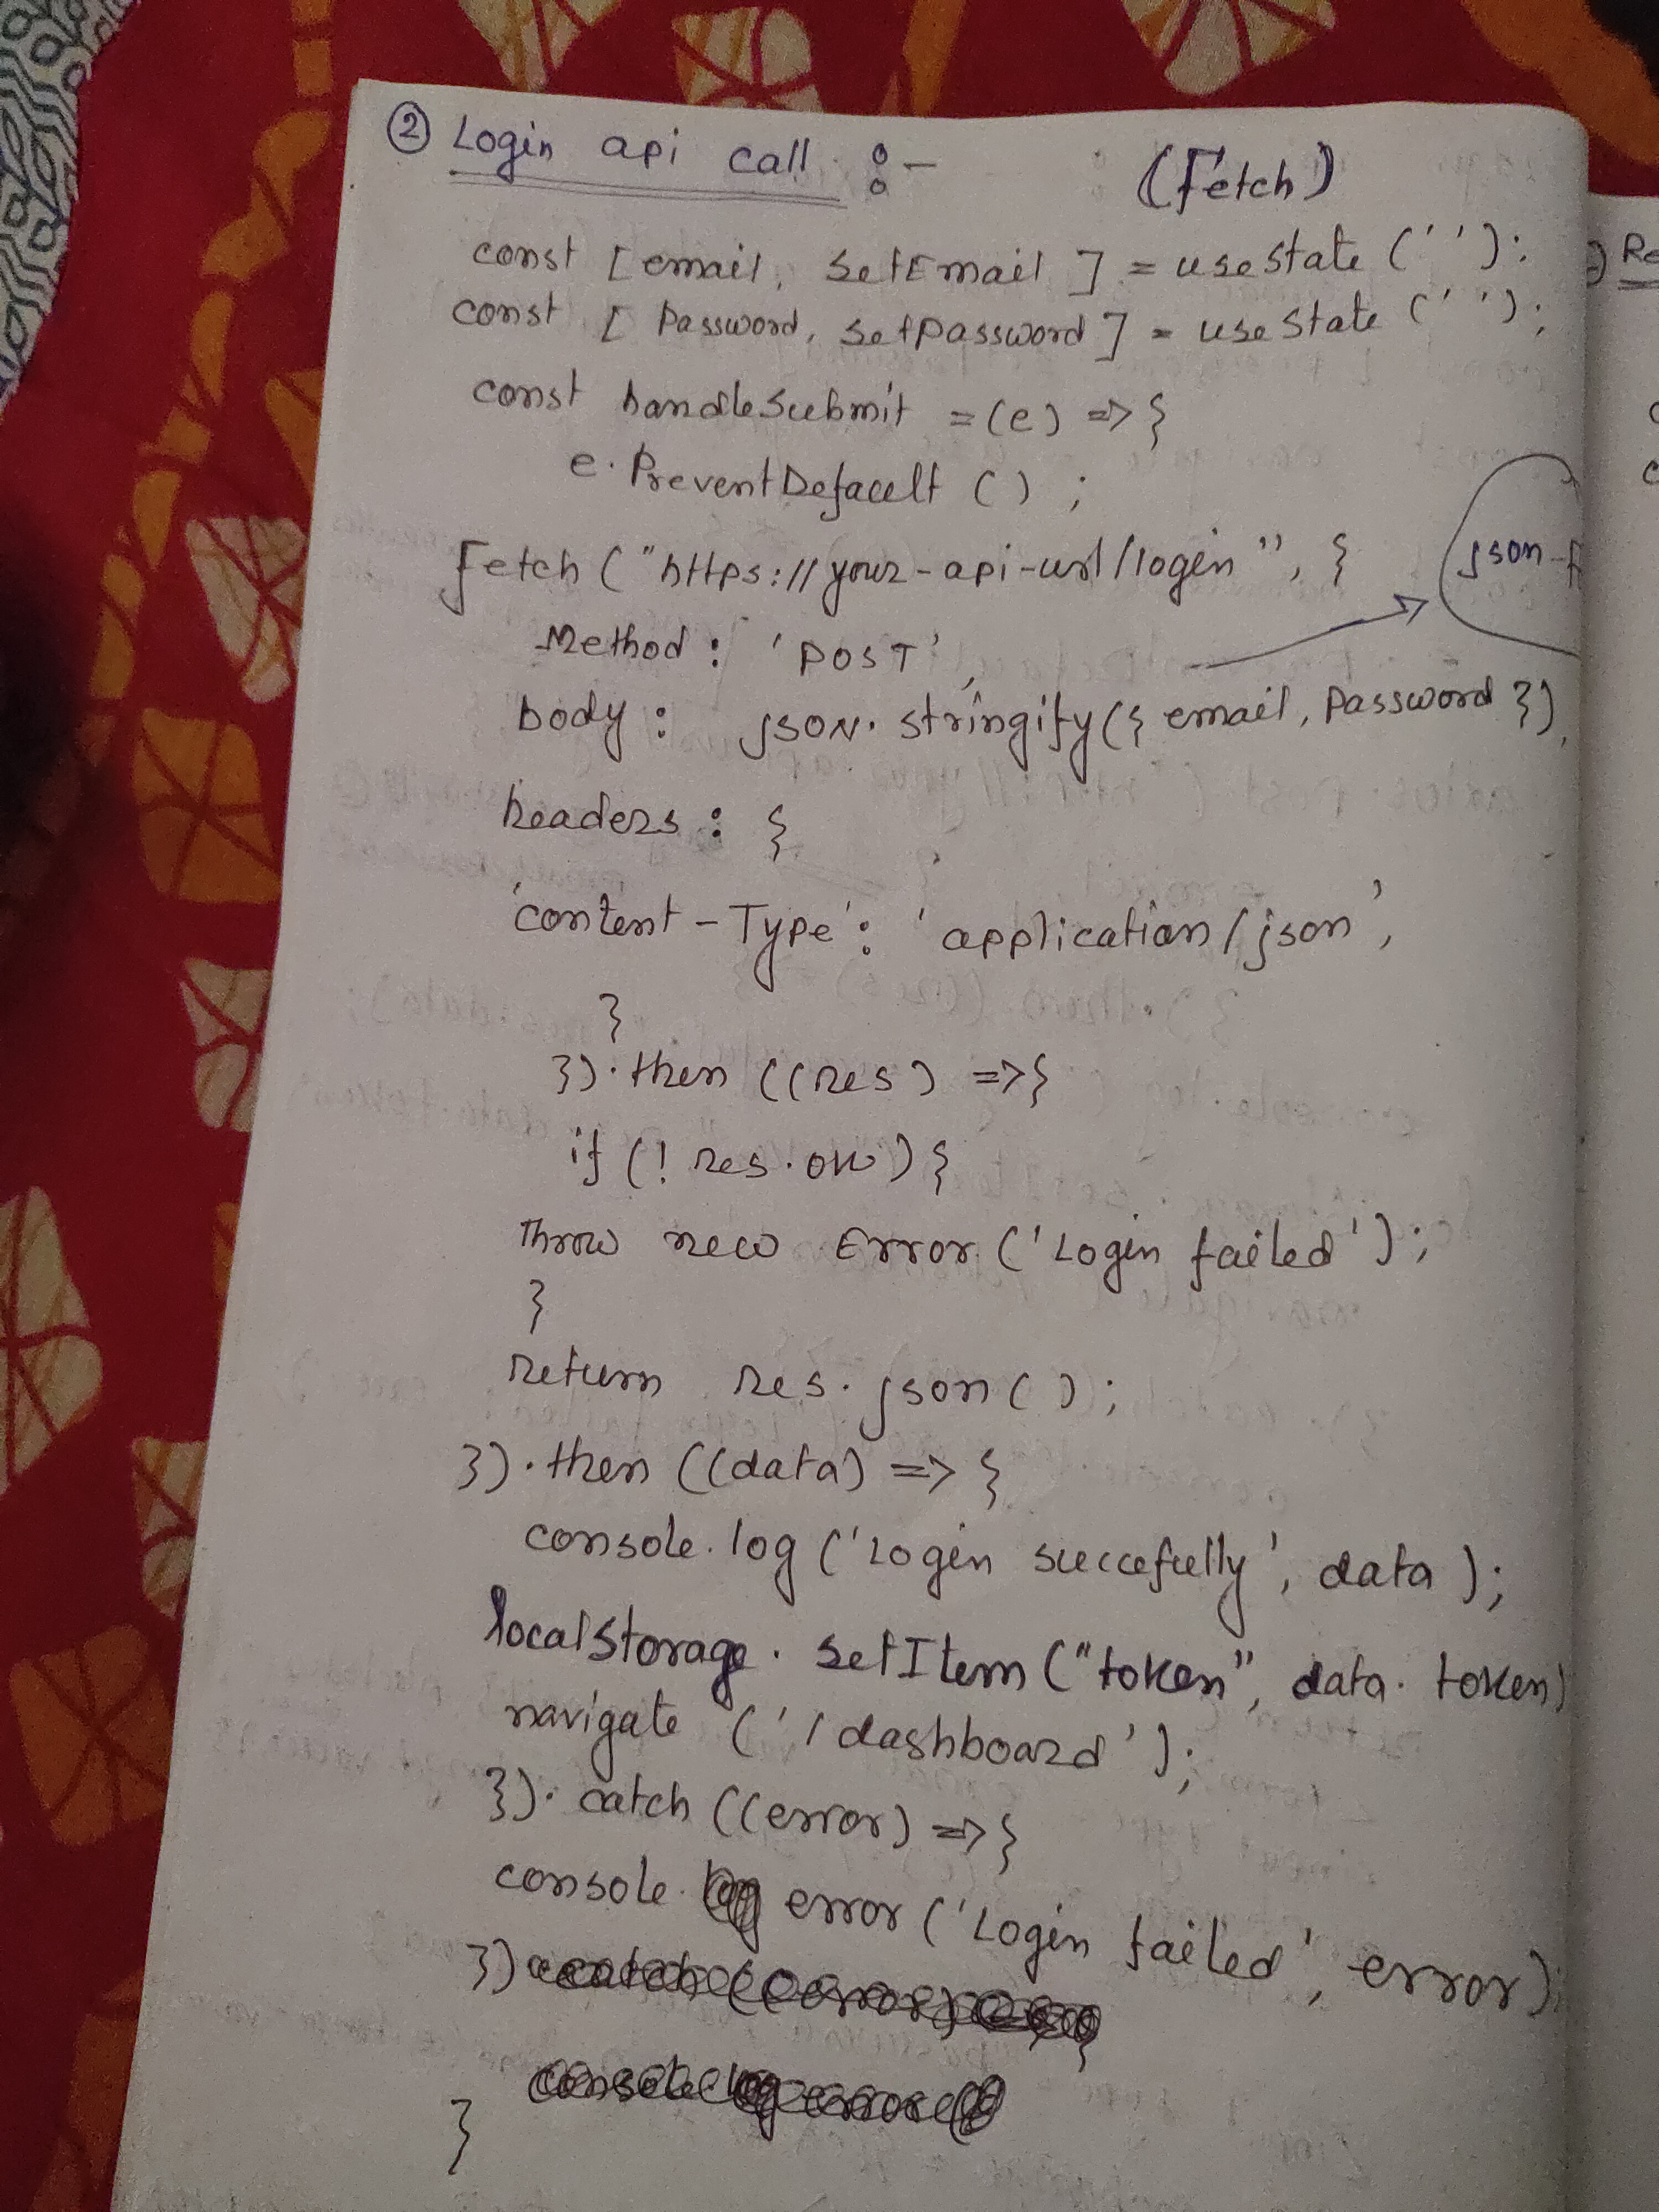 ② Login api call :- (Fetch)
const [email, setEmail] = useState('');
const [Password, setPassword] = useState('');
const handleSubmit = (e) => {
e.PreventDefault();
Fetch("https://your-api-url/login", {
json-f
Method: 'POST',
body: JSON.stringify({ email, Password }),
headers: {
'content-Type': 'application/json',
}
}).then((res) => {
if (!res.ok) {
Throw new Error('Login failed');
}
return res.json();
}).then((data) => {
console.log('Login succefully', data);
localStorage.setItem("token", data.token)
navigate('/dashboard');
}).catch((error) => {
console.error('Login failed', error);
})
}
Re